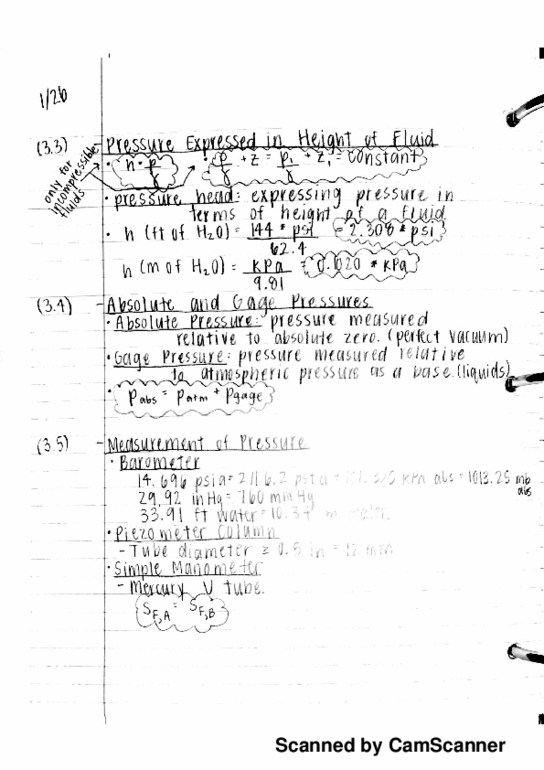 1/26
(3.3) - Pressure Expressed in Height of Fluid
only for incompressible fluids
• h = p/γ • p/γ + z = p₁/γ + z₁ = constant
• pressure head: expressing pressure in
terms of height of a fluid
• h (ft of H₂O) = 144 * psi / 62.4 = 2.308 * psi
h (m of H₂O) = kPa / 9.81 = 0.1020 * kPa
(3.4) - Absolute and Gage Pressures
• Absolute Pressure: pressure measured
relative to absolute zero. (perfect vacuum)
• Gage Pressure: pressure measured relative
to atmospheric pressure as a base. (liquids)
• Pabs = Patm + Pgage
(3.5) - Measurement of Pressure
• Barometer
14.696 psia = 2116.2 psfa = kPa abs = 1013.25 mb abs
29.92 in Hg = 760 mm Hg
33.91 ft water = 10.34 m
• Piezometer Column
- Tube diameter ≥ 0.5 in = 12 mm
• Simple Manometer
- Mercury U tube.
SF,A = SF,B
Scanned by CamScanner